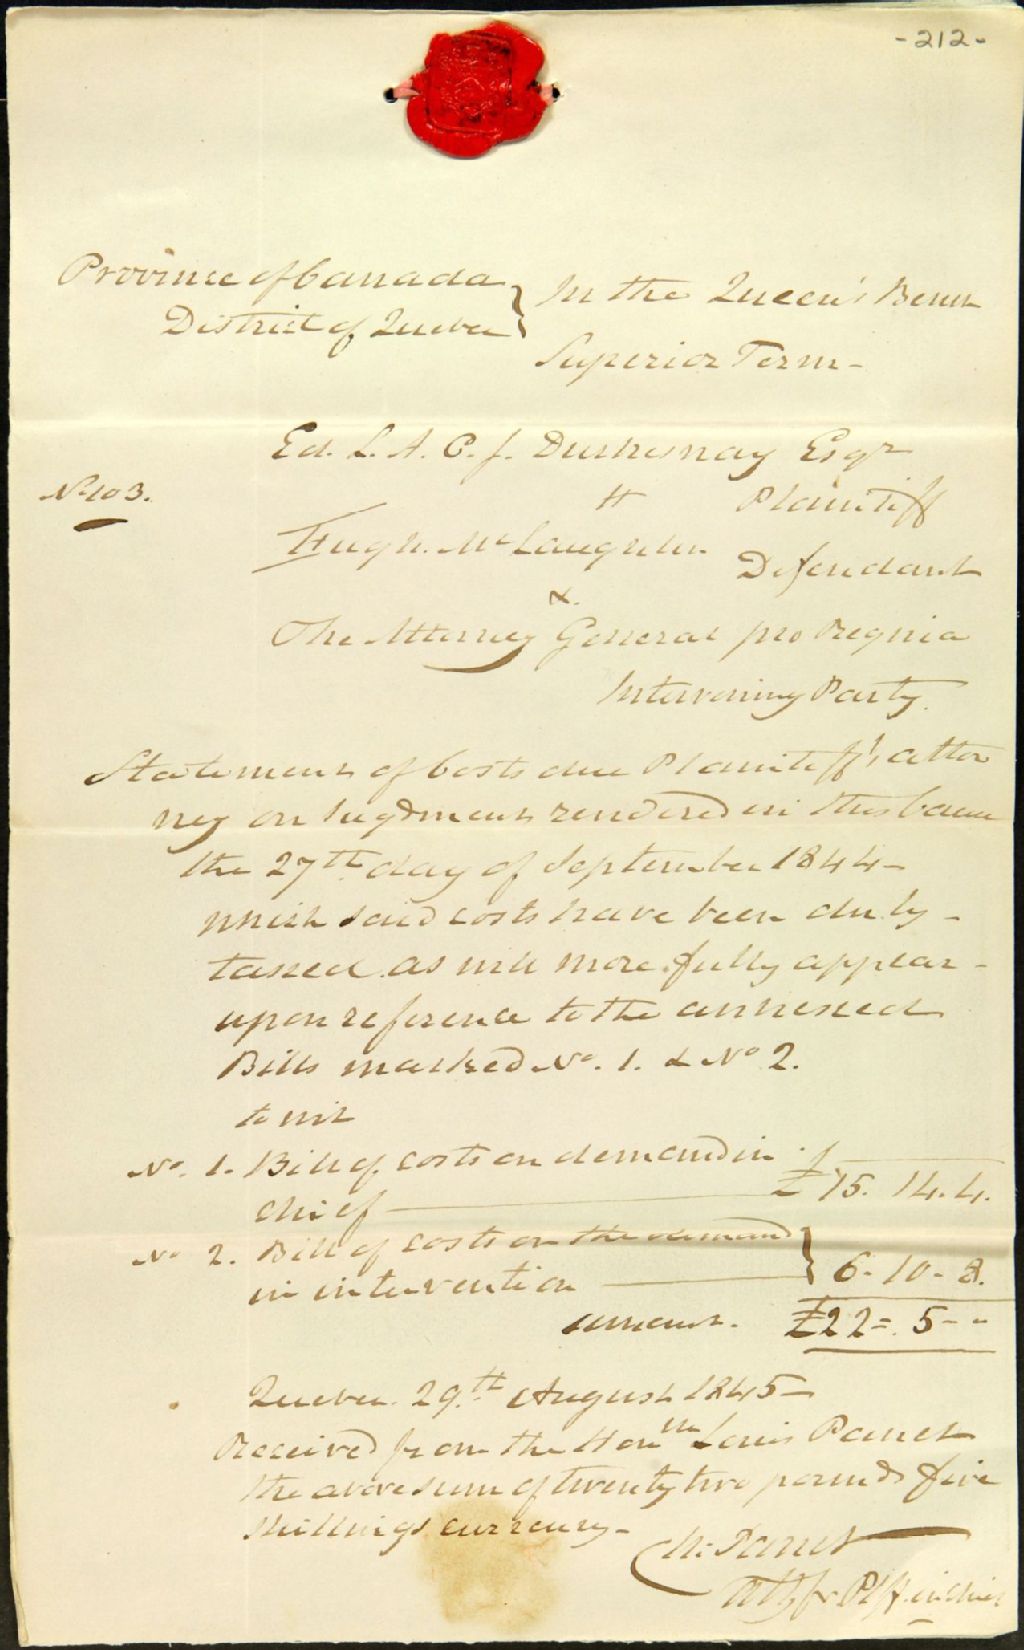 -212-
Province of Canada
District of Quebec
In the Queen's Bench
Superior Term-
Ed. L. A. C. J. Duchesnay Esqr
Plaintiff
No 103.
Hugh McLaughlin
Defendant
&
The Attorney General pro Regina
Intervening Party.
Statement of Costs due Plaintiff's attor
ney on Judgment rendered in this Cause
the 27th day of September 1844-
which said costs have been duly-
taxed as will more fully appear-
upon reference to the annexed
Bills marked No. 1. & No 2.
to wit
No. 1. Bill of costs on demand in
chief £15. 14. 4.
No 2. Bill of costs on the demand
in intervention 6-10-8.
amount. £22=5--
Quebec 29th August 1845-
Received from the Honble Louis Panet
the above sum of twenty two pounds five
shillings currency-
Ch: Panet
Atty for Plff. in chief